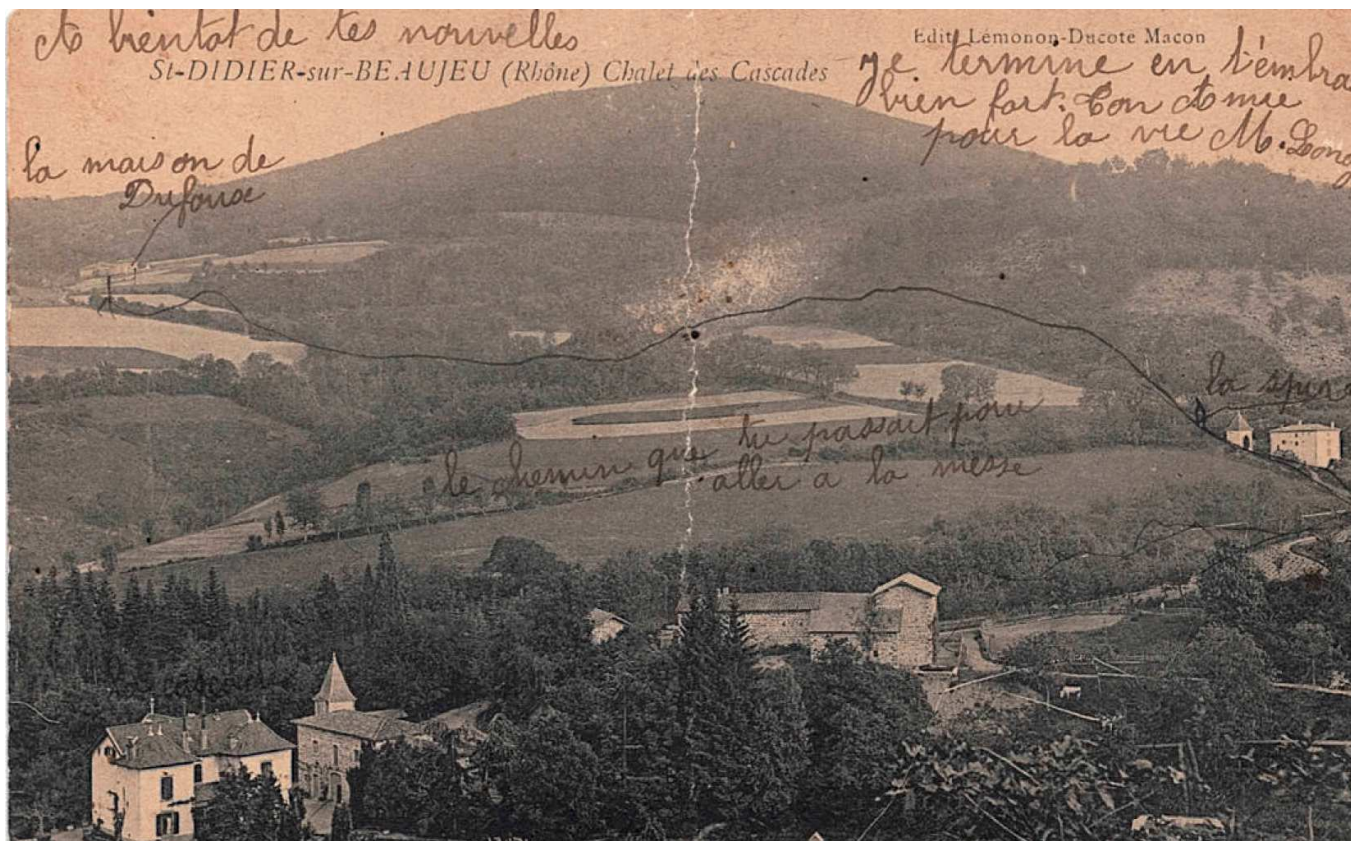 A bientot de tes nouvelles
Edit. Lémonon-Ducote Macon
St-DIDIER-sur-BEAUJEU (Rhône) Chalet des Cascades
Je termine en t'embra
bien fort. Ton Amie
pour la vie M. Long
la maison de
Dufoux
la
le chemin que tu passait pour
aller a la messe
la cascade